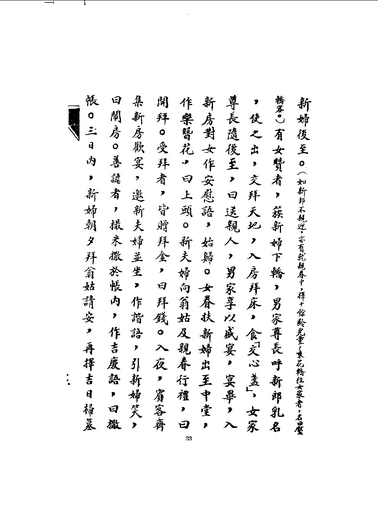 新婦後至。（如新郎不親迎，亦有就親眷中，擇十餘齡兒童，乘花轎往女家者，名曰壓
轎客。）有女贊者，簇新婦下轎，男家尊長呼新郎乳名
，使之出，交拜天地，入房拜床，食「交心盞」。女家
尊長隨後至，曰送親人，男家享以盛宴，宴畢，入
新房對女作安慰語，始歸。女眷扶新婦出至中堂，
作樂簪花，曰上頭。新夫婦向翁姑及親眷行禮，曰
開拜。受拜者，皆贈拜金，曰拜錢。入夜，賓客齊
集新房歡宴，邀新夫婦並坐，作諧語，引新婦笑，
曰鬧房。善謔者，撮米撒於帳內，作吉慶語，曰撒
帳。三日內，新婦朝夕拜翁姑請安，再擇吉日掃墓
33